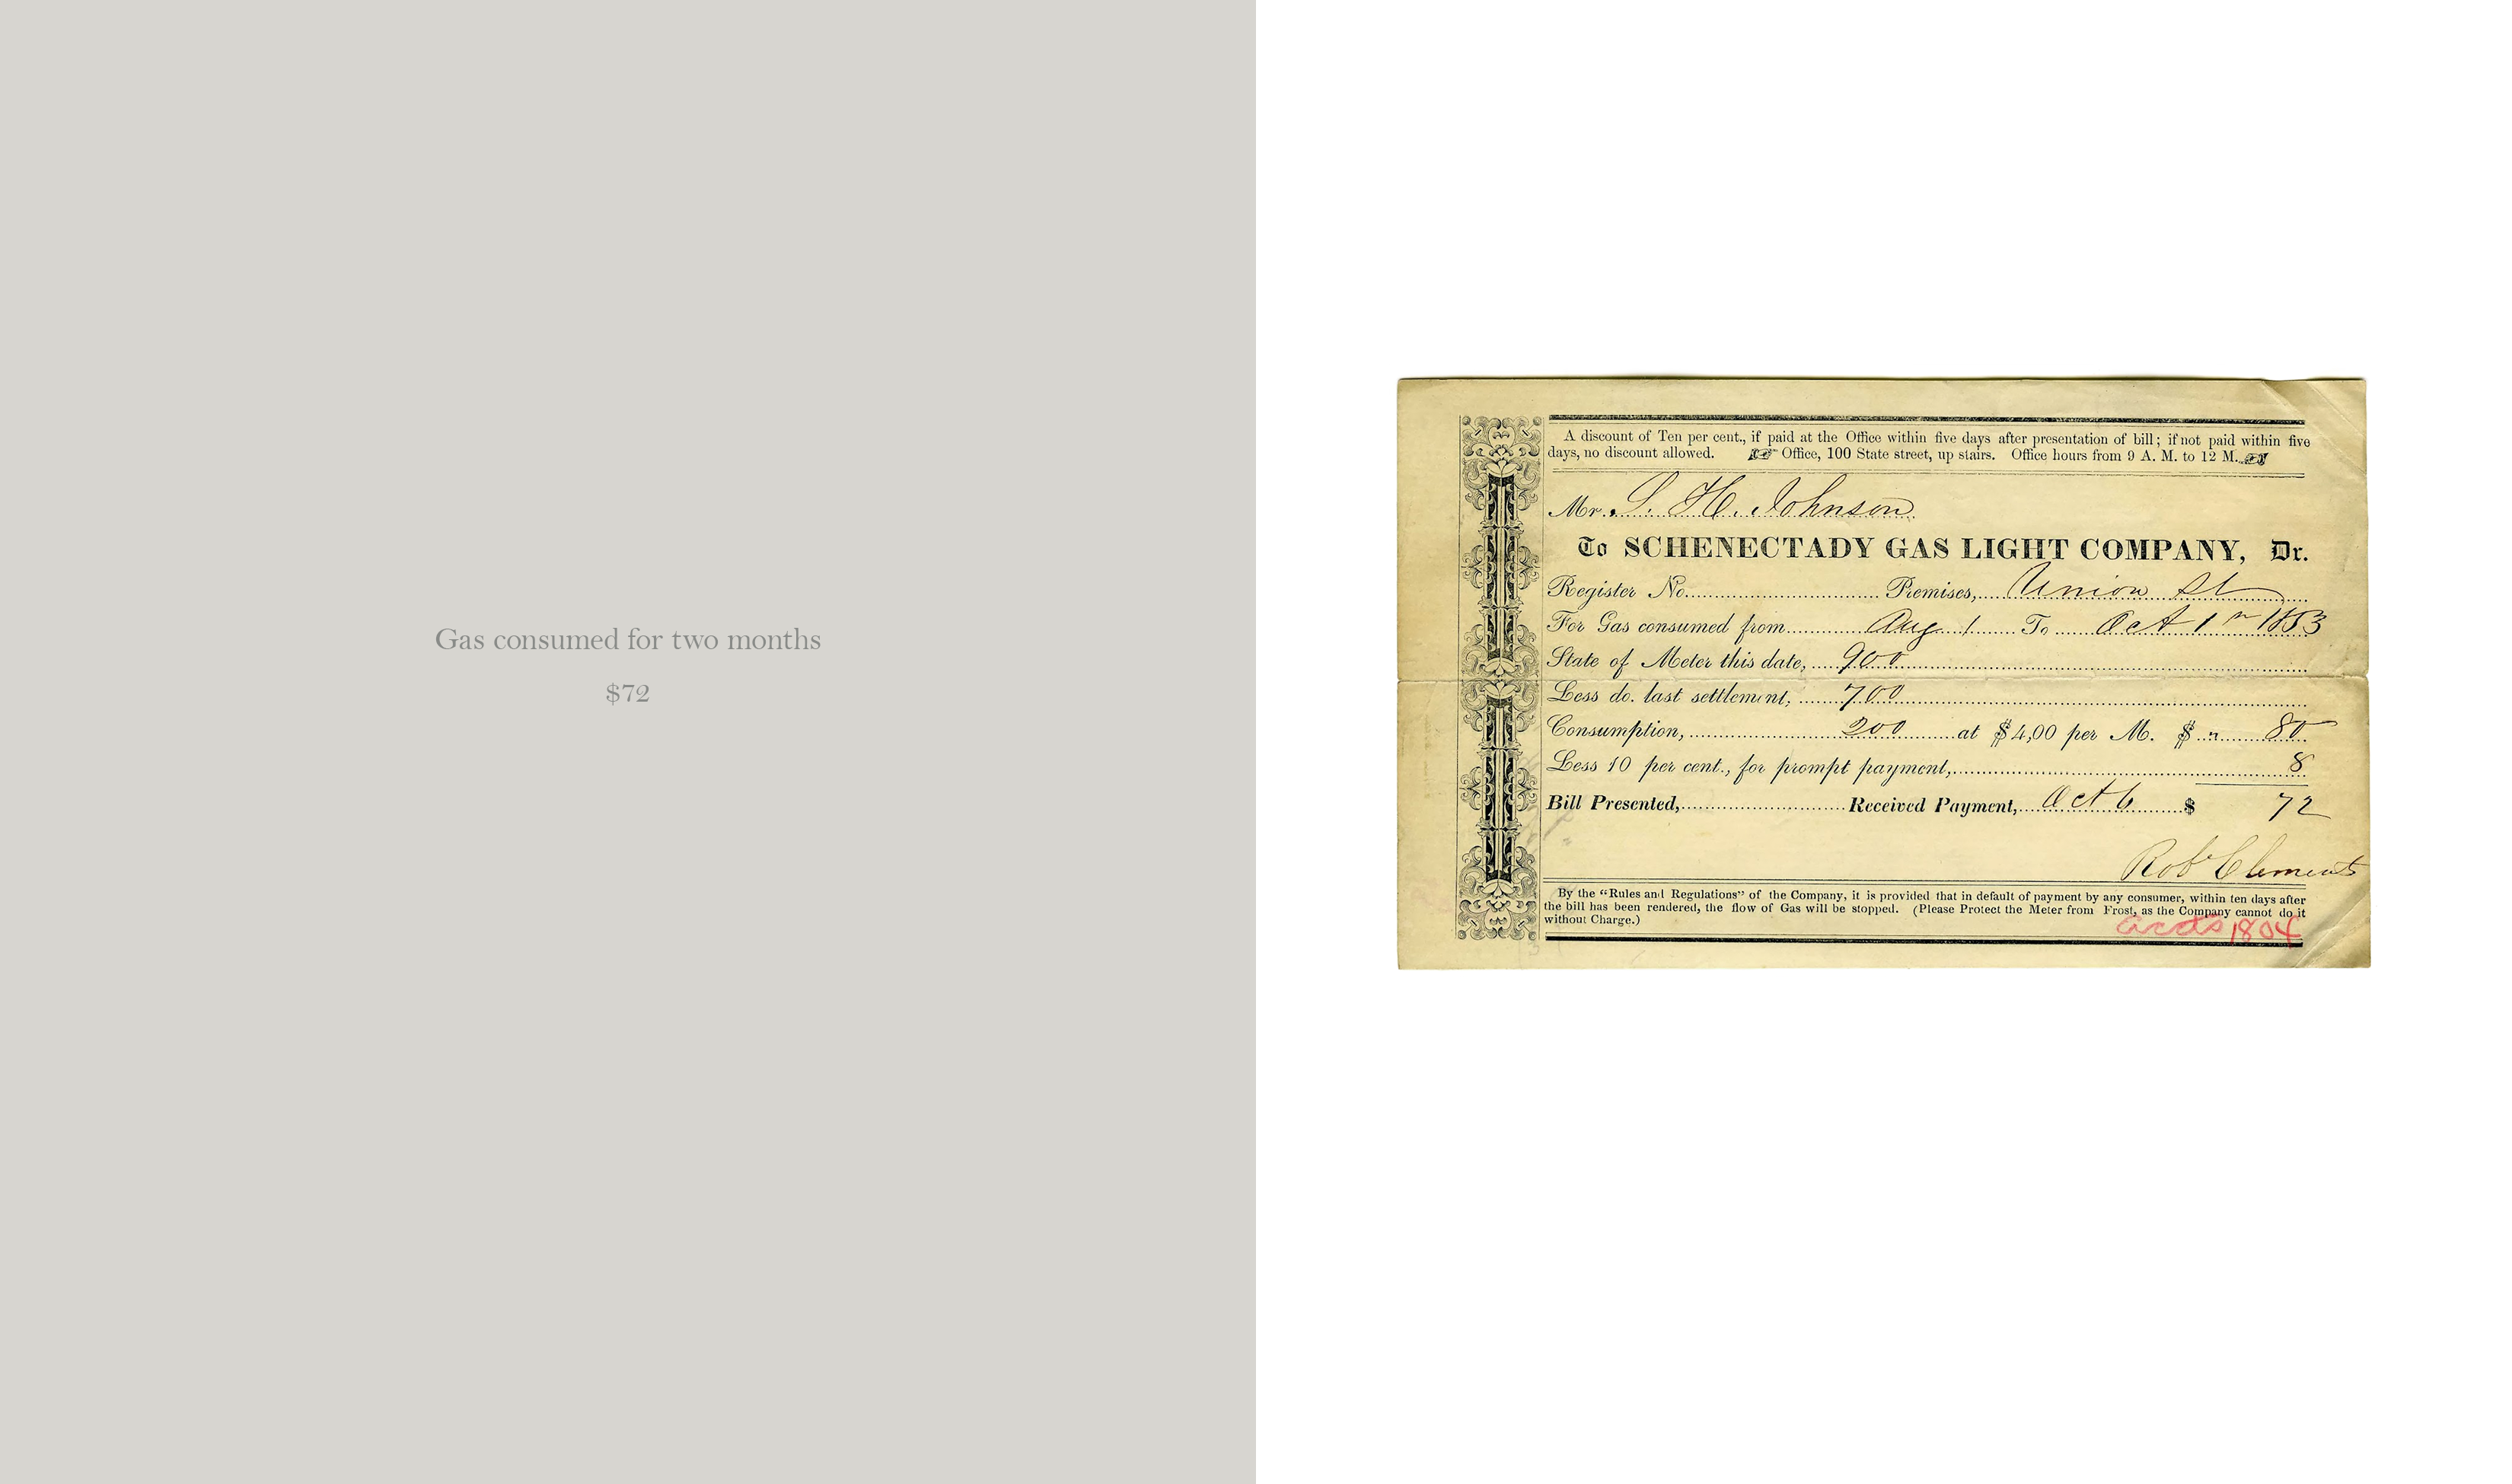 Gas consumed for two months
$72
A discount of Ten per cent., if paid at the Office within five days after presentation of bill; if not paid within five
days, no discount allowed. Office, 100 State street, up stairs. Office hours from 9 A. M. to 12 M.
Mr. S. H. Johnson
To SCHENECTADY GAS LIGHT COMPANY, Dr.
Register No. Premises, Union St
For Gas consumed from Aug 1 To Oct 1 1853
State of Meter this date, 900
Less do. last settlement, 700
Consumption, 200 at $4,00 per M. $ " 80
Less 10 per cent., for prompt payment, 8
Bill Presented, Received Payment, Oct 6 $ 72
Rob Clements
By the "Rules and Regulations" of the Company, it is provided that in default of payment by any consumer, within ten days after
the bill has been rendered, the flow of Gas will be stopped. (Please Protect the Meter from Frost, as the Company cannot do it
without Charge.)
1804